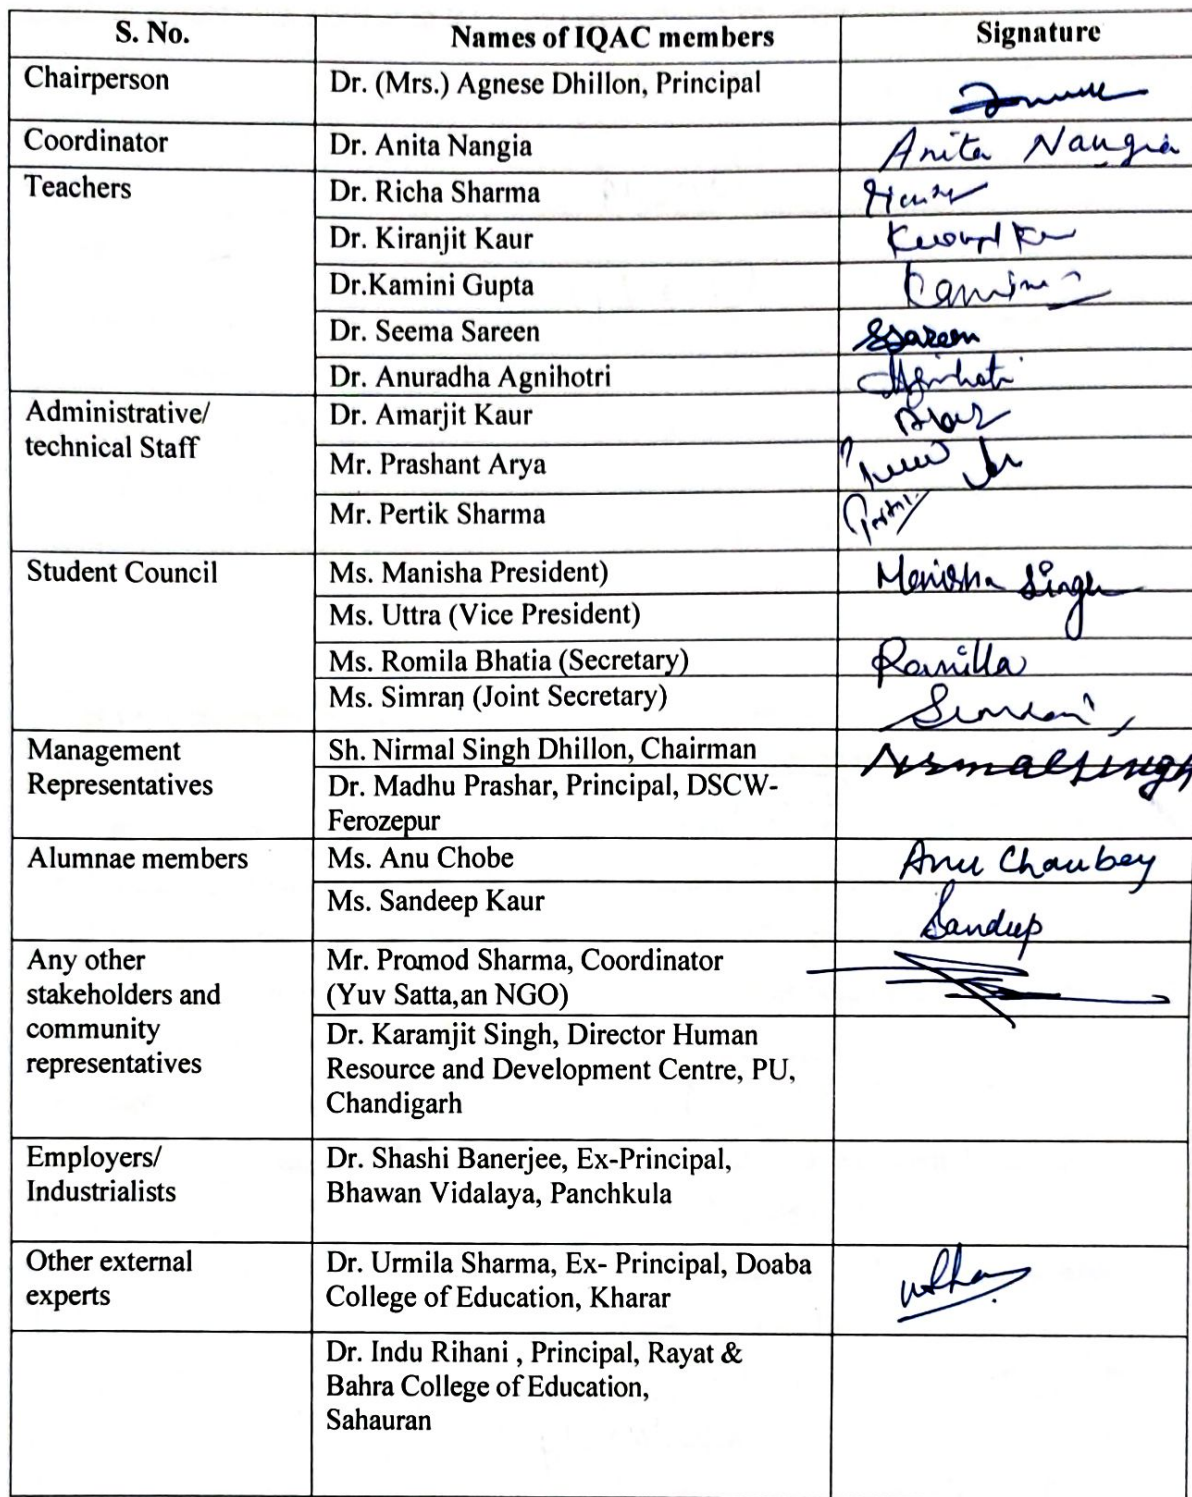 S. No. Names of IQAC members Signature
Chairperson Dr. (Mrs.) Agnese Dhillon, Principal
Coordinator Dr. Anita Nangia Anita Nangia
Teachers Dr. Richa Sharma
Dr. Kiranjit Kaur
Dr.Kamini Gupta Kamini
Dr. Seema Sareen SSareen
Dr. Anuradha Agnihotri Agnihotri
Administrative/
technical Staff
Dr. Amarjit Kaur
Mr. Prashant Arya
Mr. Pertik Sharma
Student Council Ms. Manisha President) Manisha Singh
Ms. Uttra (Vice President)
Ms. Romila Bhatia (Secretary) Romilla
Ms. Simran (Joint Secretary) Simran
Management
Representatives
Sh. Nirmal Singh Dhillon, Chairman Nirmalsingh
Dr. Madhu Prashar, Principal, DSCW-
Ferozepur
Alumnae members Ms. Anu Chobe Anu Chaubey
Ms. Sandeep Kaur Sandeep
Any other
stakeholders and
community
representatives
Mr. Promod Sharma, Coordinator
(Yuv Satta,an NGO)
Dr. Karamjit Singh, Director Human
Resource and Development Centre, PU,
Chandigarh
Employers/
Industrialists
Dr. Shashi Banerjee, Ex-Principal,
Bhawan Vidalaya, Panchkula
Other external
experts
Dr. Urmila Sharma, Ex- Principal, Doaba
College of Education, Kharar
Dr. Indu Rihani , Principal, Rayat &
Bahra College of Education,
Sahauran